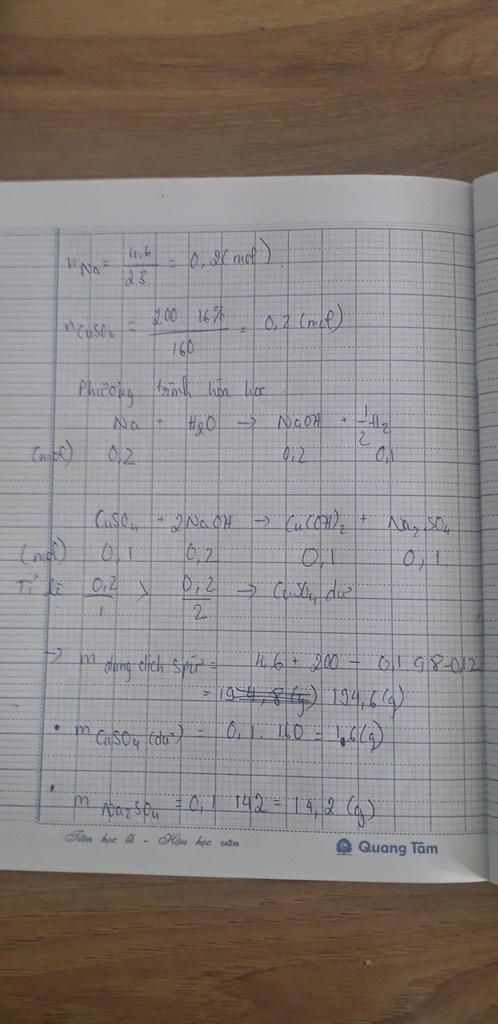 nNa = 4,6/23 = 0,2 (mol).
nCuSO4 = 200 . 16%/160 = 0,2 (mol)
Phương trình hóa học
Na + H2O → NaOH + 1/2 H2
(mol) 0,2 0,2 0,1
CuSO4 + 2NaOH → Cu(OH)2 + Na2SO4
(mol) 0,1 0,2 0,1 0,1
Tỉ lệ 0,2/1 > 0,2/2 → CuSO4 dư
→ m dung dịch spứ = 4,6 + 200 - 0,1 98 - 0,1.2
= 194,8 (g) 194,6 (g)
• m CuSO4 (dư) = 0,1 . 160 = 1,6 (g)
• m Na2SO4 = 0,1 142 = 14,2 (g)
Tiên học lễ - Hậu học văn
Quang Tâm